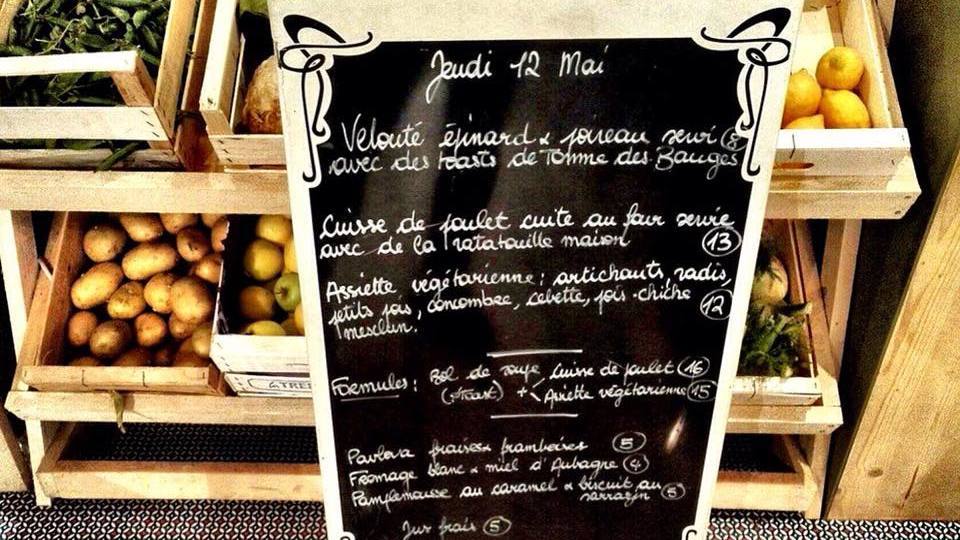 Jeudi 12 Mai
Velouté épinard & poireau servi 8
avec des toasts de Tomme des Bauges
Cuisse de poulet cuite au four servie
avec de la ratatouille maison 13
Assiette végétarienne : artichauts, radis,
petits pois, concombre, cebette, pois-chiche 12
mesclun.
Formules : Bol de soupe Cuisse de poulet 16
(+toast) +< Assiette végétarienne 15
Pavlova fraises & framboises 5
Fromage blanc & miel d'Aubagne 4
Pamplemousse au caramel & biscuit au
sarrasin 5
Jus frais 5